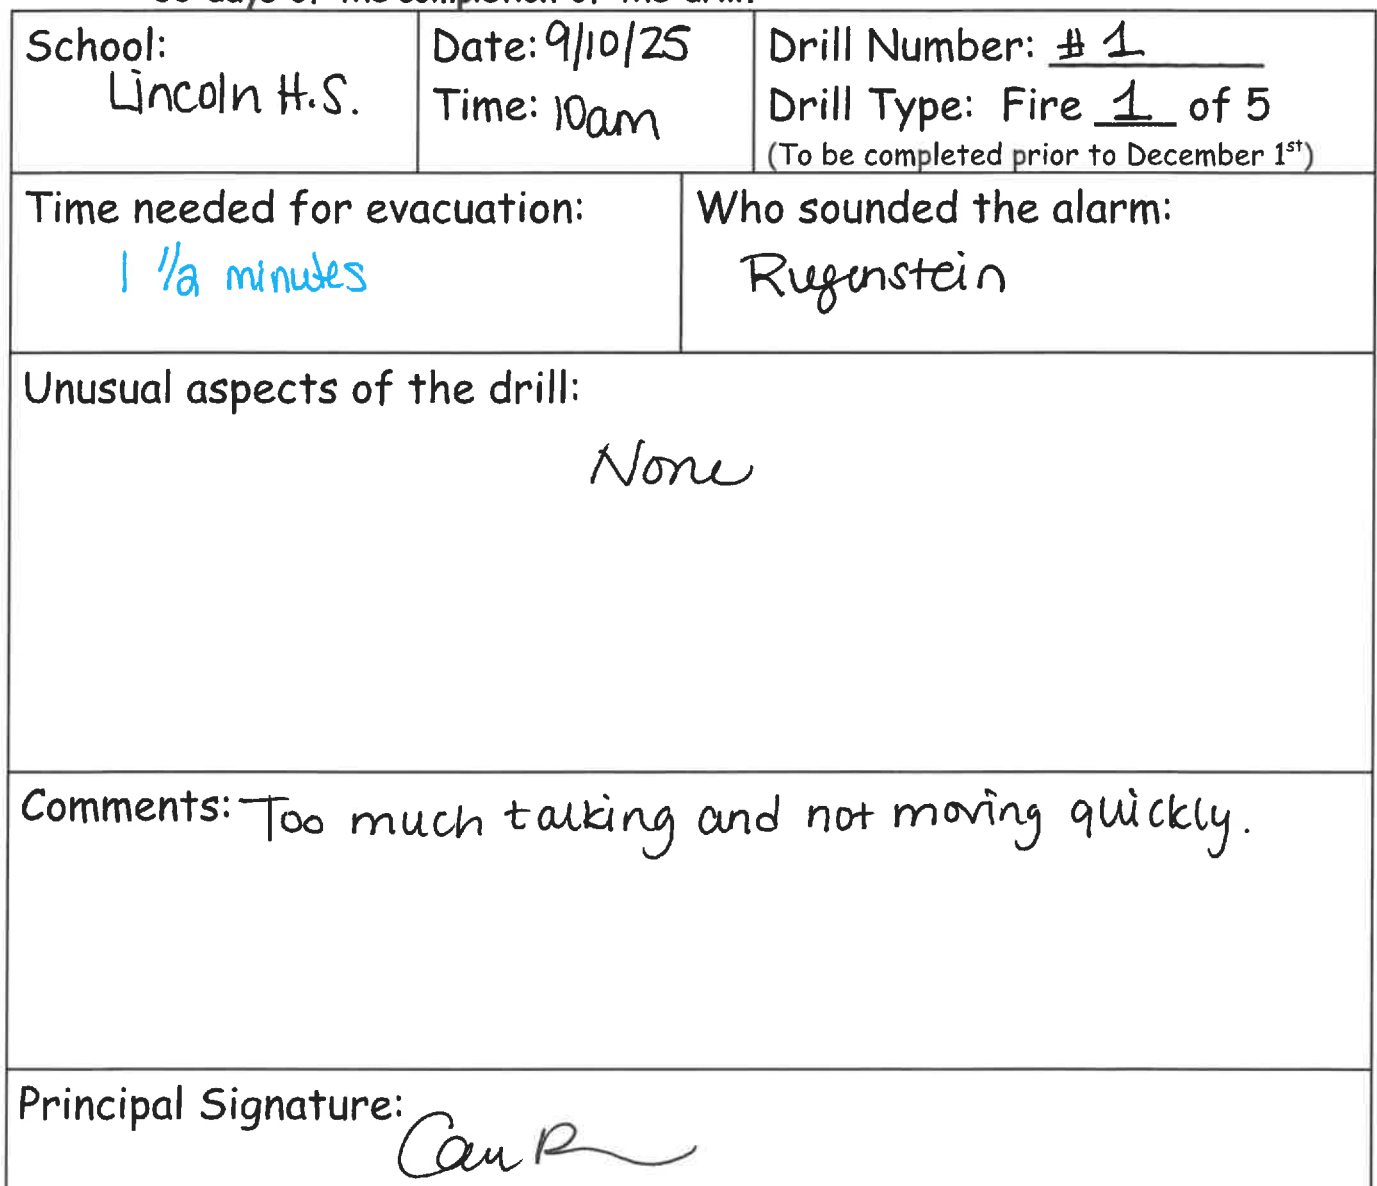 30 days of the completion of the drill.
School:
Lincoln H.S.
Date: 9/10/25
Time: 10am
Drill Number: # 1
Drill Type: Fire 1 of 5
(To be completed prior to December 1st)
Time needed for evacuation:
1 1/2 minutes
Who sounded the alarm:
Rugenstein
Unusual aspects of the drill:
None
Comments: Too much talking and not moving quickly.
Principal Signature: